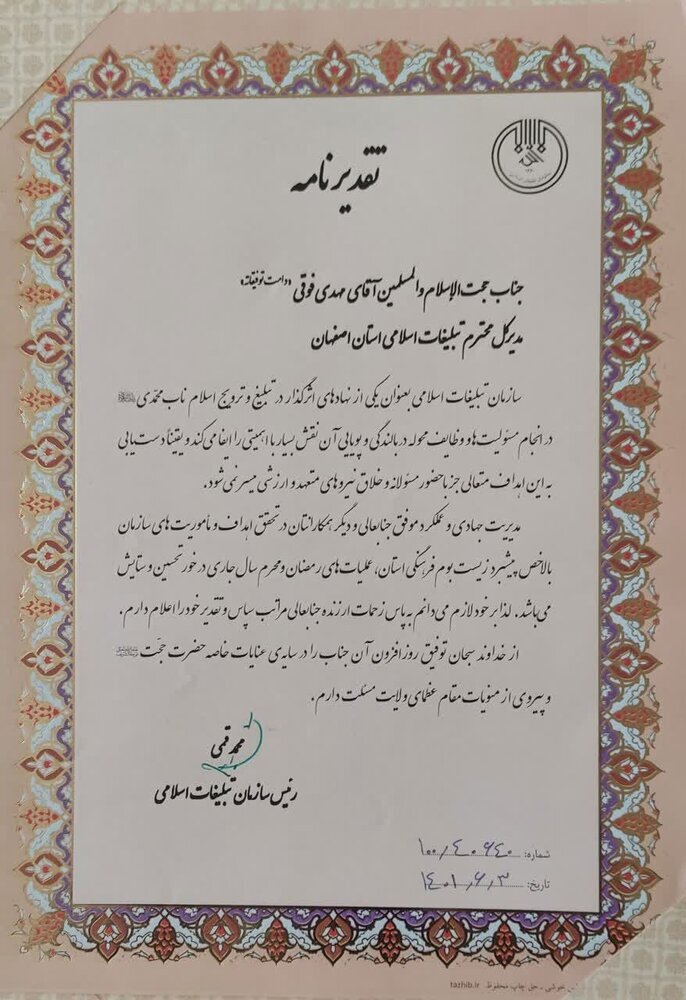 تقدیرنامه
جناب حجت الإسلام والمسلمین آقای مهدی فوقی «دامت توفیقاته»
مدیرکل محترم تبلیغات اسلامی استان اصفهان
سازمان تبلیغات اسلامی بعنوان یکی از نهادهای اثرگذار در تبلیغ و ترویج اسلام ناب محمّدی
در انجام مسئولیت‌ها و وظایف محوله در بالندگی و پویایی آن نقش بسیار با اهمیتی را ایفا می‌کند و یقیناً دست‌یابی
به این اهداف متعالی جز با حضور مسئولانه و خلاق نیروهای متعهد و ارزشی میسر نمی‌شود.
مدیریت جهادی و عملکرد موفق جنابعالی و دیگر همکارانتان در تحقق اهداف و مأموریت‌های سازمان
بالاخص پیشبرد زیست بوم فرهنگی استان، عملیات‌های رمضان و محرم سال جاری در خور تحسین و ستایش
می‌باشد. لذا بر خود لازم می‌دانم به پاس زحمات ارزنده جنابعالی مراتب سپاس و تقدیر خود را اعلام دارم.
از خداوند سبحان توفیق روزافزون آن جناب را در سایه‌ی عنایات خاصه حضرت حجّت
و پیروی از منویات مقام عظمای ولایت مسئلت دارم.
محمد قمی
رئیس سازمان تبلیغات اسلامی
شماره: ۱۰۰/۴۰۶۴۰
تاریخ: ۱۴۰۱/۶/۳
حق چاپ محفوظ tazhib.ir